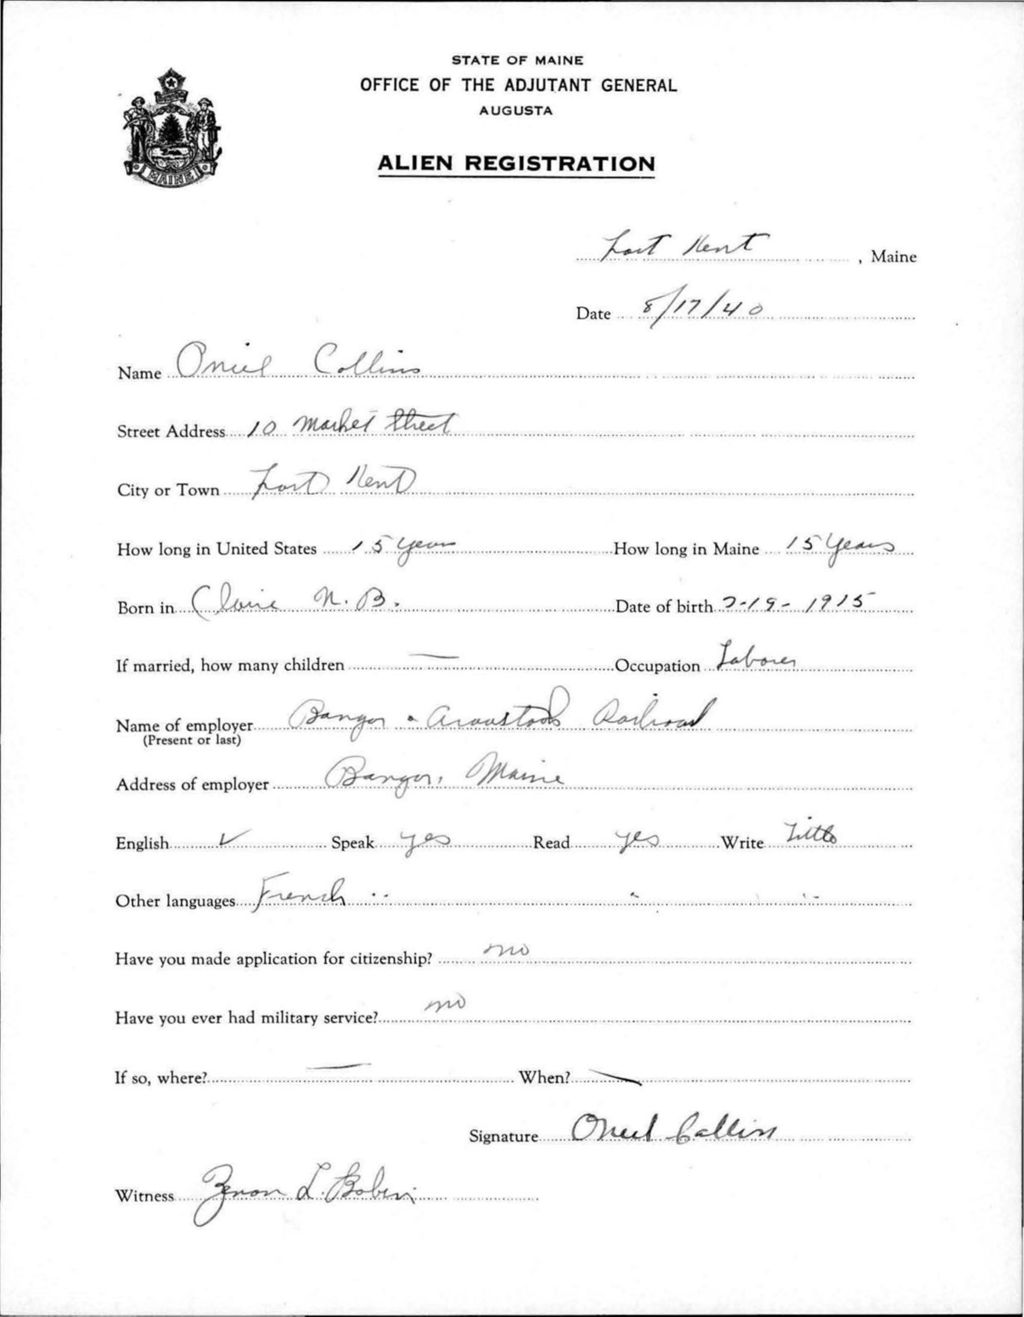 STATE OF MAINE
OFFICE OF THE ADJUTANT GENERAL
AUGUSTA
ALIEN REGISTRATION
MAINE
Fort Kent, Maine
Date 8/17/40
Name Oniel Collins
Street Address 10 Market Street
City or Town Fort Kent
How long in United States 15 years How long in Maine 15 Years
Born in Claire N.B. Date of birth 7-19-1915
If married, how many children — Occupation Laborer
Name of employer Bangor & Aroostook Railroad
(Present or last)
Address of employer Bangor, Maine
English ✓ Speak yes Read yes Write Little
Other languages French
Have you made application for citizenship? no
Have you ever had military service? no
If so, where? — When? —
Signature Oneil Collins
Witness L.